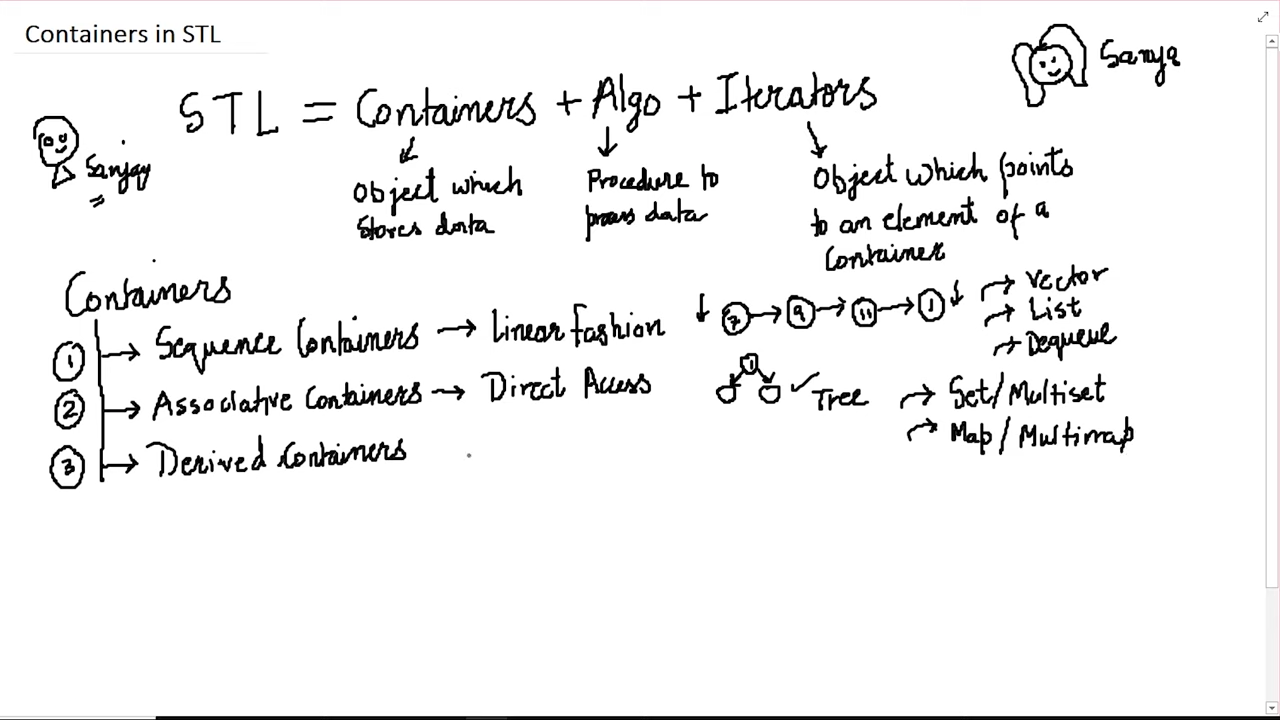 Containers in STL
Sanya
STL = Containers + Algo + Iterators
Sanjay
Object which
stores data
Procedure to
process data
Object which points
to an element of a
Container
Containers
1 Sequence Containers → Linear Fashion ↓ 7 → 9 → 11 → 1 ↓
Vector
List
Dequeue
2 Associative Containers → Direct Access 1 ✓ Tree
Set/Multiset
Map/Multimap
3 Derived Containers